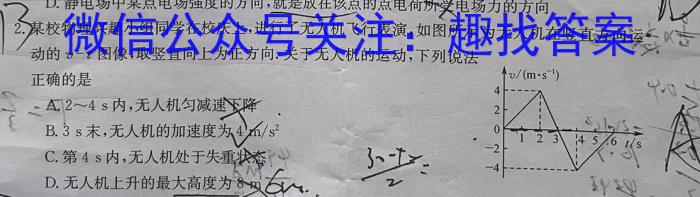 D. 静电场中某点电场强度的方向,就是放在该点的点电荷所受电场力的方向
微信公众号关注：趣找答案
2. 某校物理兴趣小组同学在校庆上,进行了无人机飞行表演,如图所示为无人机在竖直方向运
动的v-t图像,取竖直向上为正方向,关于无人机的运动,下列说法
正确的是
A. 2～4 s 内,无人机匀减速下降
B. 3 s 末,无人机的加速度为 4 m/s²
C. 第 4 s 内,无人机处于失重状态
D. 无人机上升的最大高度为 8 m
6m
v/(m·s⁻¹)
4
2
0
1 2 3 4 5 6 t/s
-2
-4